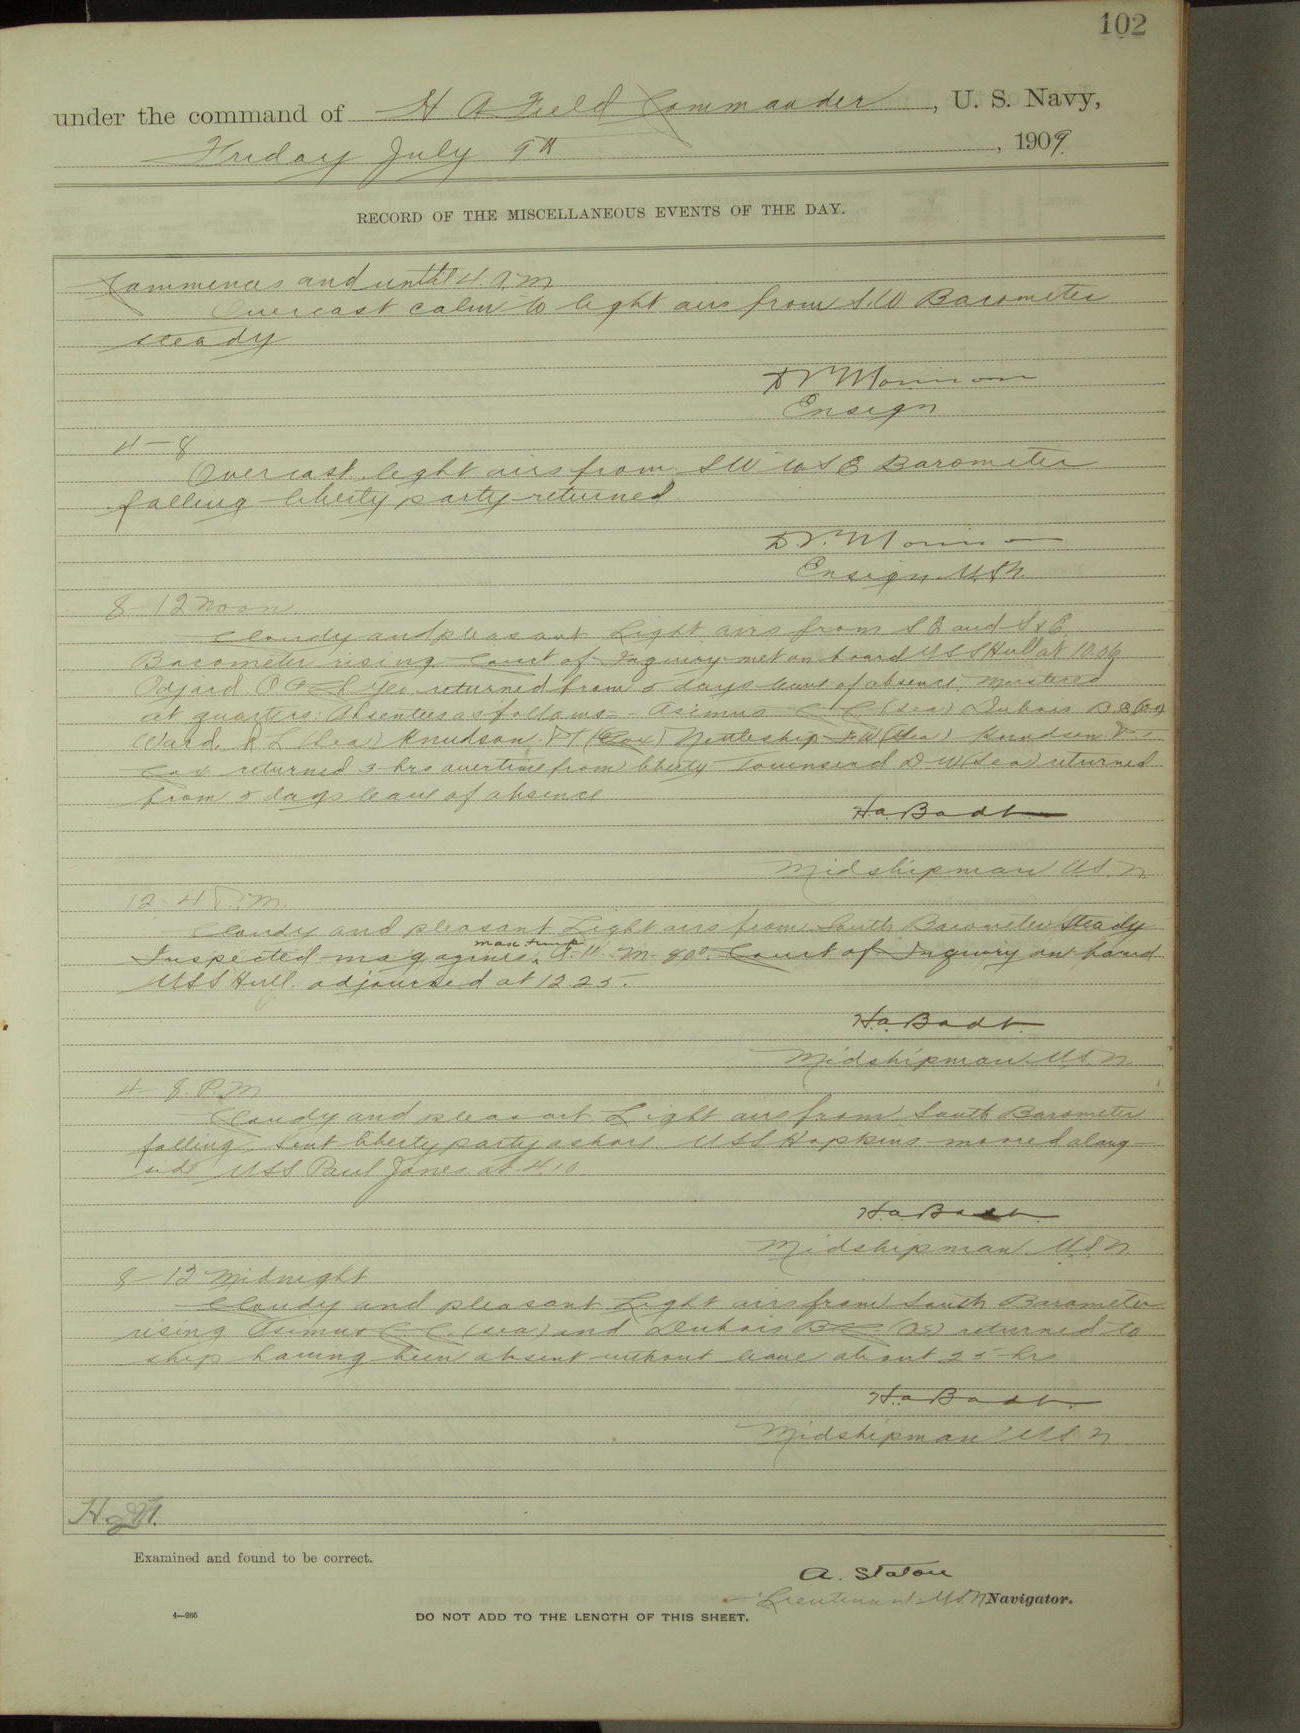 102
under the command of H A Field Commander, U. S. Navy,
Friday July 9th, 1909
RECORD OF THE MISCELLANEOUS EVENTS OF THE DAY.
Commences and until 4 A.M
Overcast calm to light airs from S.W Barometer
steady
D V Morrison
Ensign
4-8
Overcast light airs from SW to S E Barometer
falling liberty party returned
D.V. Morrison
Ensign U.S.N.
8-12 Noon
Cloudy and pleasant Light airs from S E and SxE
Barometer rising Court of Inquiry met on board USS Hull at 10.06
returned from 5 days leave of absence. Mustered
at quarters: Absentees as follows Asimus C. C. (Sea) Dubois B.
Ward. R L (Sea) Knudson. P.T (Cox) Nettleship F W (Sea) Knudson P T
Cox returned 3 hrs overtime from liberty Townsend D W (Sea) returned
from 5 days leave of absence
H.a. Badt
Midshipman U.S.N.
12-4 P.M.
Cloudy and pleasant Light airs from South Barometer Steady
Inspected magazines, max temp 80° Court of Inquiry on board
USS Hull. adjourned at 12 25.
H.a. Badt.
Midshipman U.S.N.
4-8. P.M
Cloudy and pleasant Light airs from South Barometer
falling. Sent liberty party ashore USS Hopkins moored along
side USS Paul Jones at 4.10
H.a. Badt.
Midshipman U.S.N.
8-12 Midnight
Cloudy and pleasant Light airs from South Barometer
rising Asimus C. C. (sea) and Dubois B (OS) returned to
ship having been absent without leave about 25 hrs
H.a. Badt.
Midshipman U S N
Examined and found to be correct.
A. Staton
Lieutenant U.S.N. Navigator.
4—265
DO NOT ADD TO THE LENGTH OF THIS SHEET.